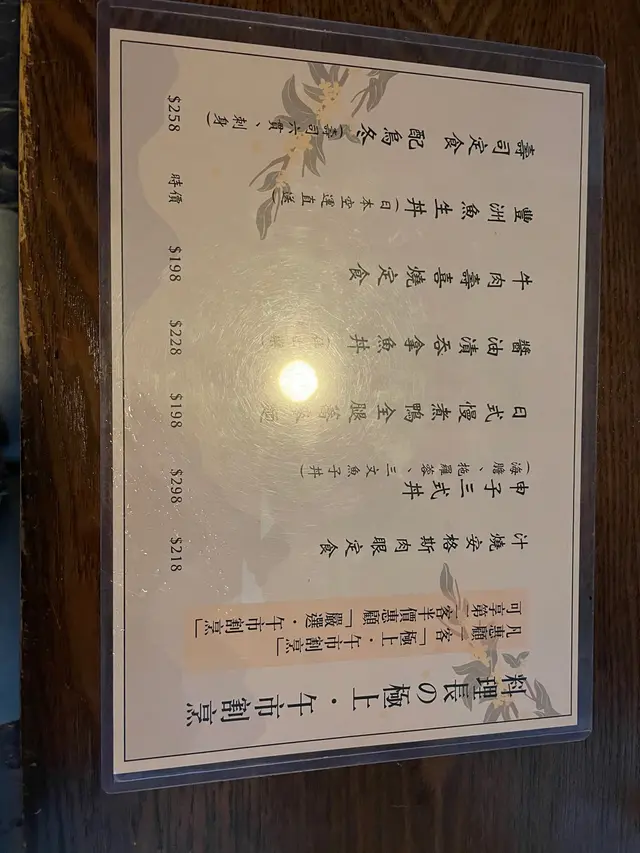 料理長の極上・午市割烹
凡惠顧一客「極上・午市割烹」
可享第二客半價惠顧「嚴選・午市割烹」
汁燒安格斯肉眼定食 $218
申子三式丼 $298
(海膽、拖羅蓉、三文魚子丼)
日式慢煮鴨全腿 $198
醬油漬吞拿魚丼 $228
牛肉壽喜燒定食 $198
豐洲魚生丼(日本空運直送) 時價
壽司定食 配烏冬 $258
(壽司六貫、刺身)